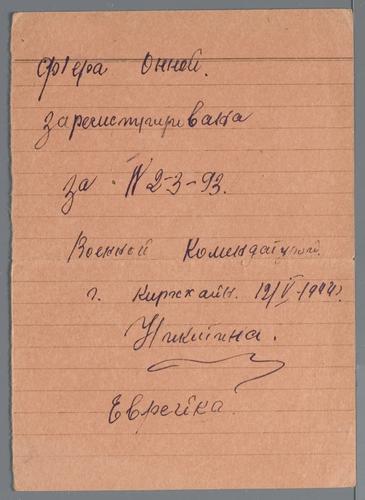 Фгера Онной.
зарегистрирована
за № 2-3-93.
Военной Комендатурой.
г. Кирхайн. 12/V-1944г.
Никитина.
Еврейка.